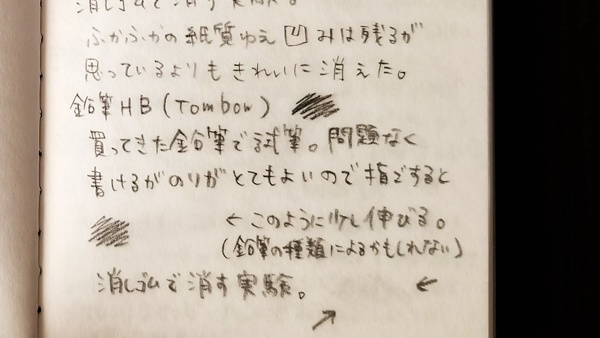 消しゴムで消す実験。
ふかふかの紙質ゆえ凹みは残るが
思っているよりもきれいに消えた。
鉛筆HB(Tombow)
買ってきた鉛筆で試筆。問題なく
書けるがのりがとてもよいので指でする​と
← このように少し伸びる。
(鉛筆の種類によるかもしれない)
消しゴムで消す実験。 ←
↗